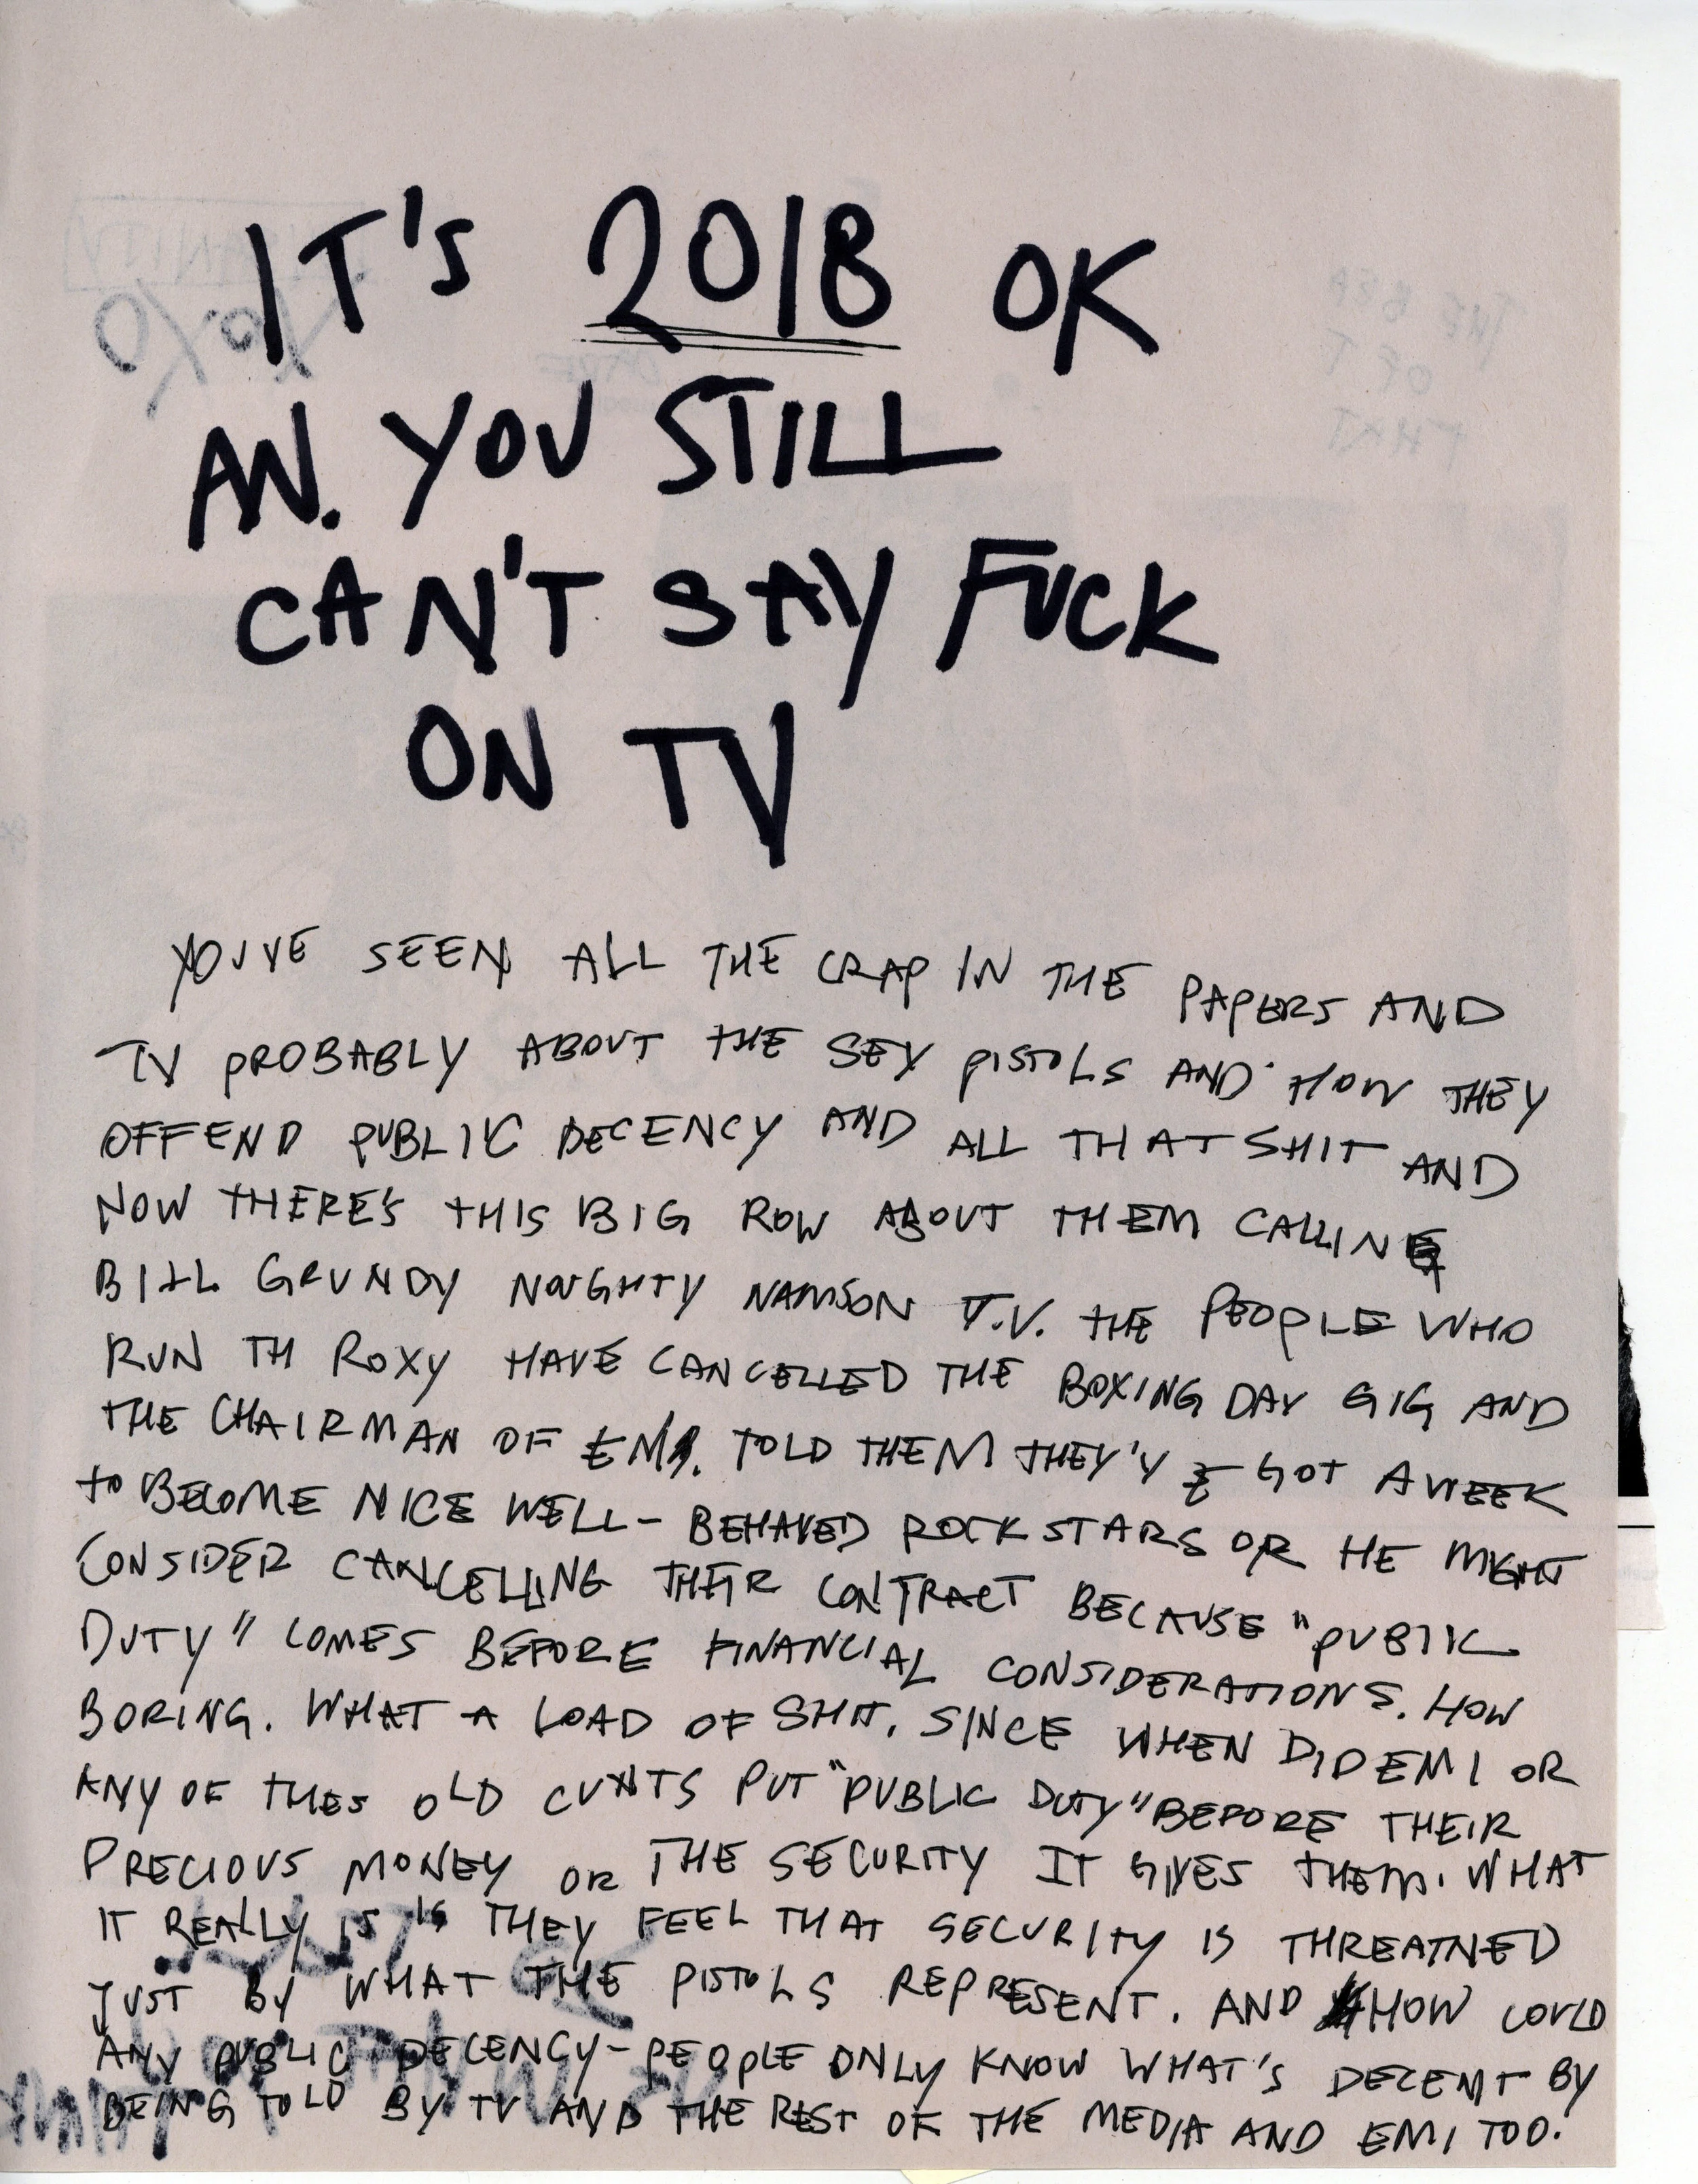 IT'S 2018 OK
AN. YOU STILL
CAN'T SAY FUCK
ON TV
YOUVE SEEN ALL THE CRAP IN THE PAPERS AND
TV PROBABLY ABOUT THE SEX PISTOLS AND HOW THEY
OFFEND PUBLIC DECENCY AND ALL THAT SHIT AND
NOW THERE'S THIS BIG ROW ABOUT THEM CALLING
BILL GRUNDY NOUGHTY NAMSON T.V. THE PEOPLE WHO
RUN TH ROXY HAVE CANCELLED THE BOXING DAY GIG AND
THE CHAIRMAN OF EMI. TOLD THEM THEY'V E GOT A WEEK
TO BECOME NICE WELL - BEHAVED ROCK STARS OR HE MIGHT
CONSIDER CANCELLING THEIR CONTRACT BECAUSE "PUBLIC
DUTY" COMES BEFORE FINANCIAL CONSIDERATIONS. HOW
BORING. WHAT A LOAD OF SHIT. SINCE WHEN DID EMI OR
ANY OF THES OLD CUNTS PUT "PUBLIC DUTY" BEFORE THEIR
PRECIOUS MONEY OR THE SECURITY IT GIVES THEM. WHAT
IT REALLY IS IS THEY FEEL THAT SECURITY IS THREATNED
JUST BY WHAT THE PISTOLS REPRESENT. AND HOW COULD
ANY PUBLIC DECENCY - PEOPLE ONLY KNOW WHAT'S DECENT BY
BEING TOLD BY TV AND THE REST OF THE MEDIA AND EMI TOO.